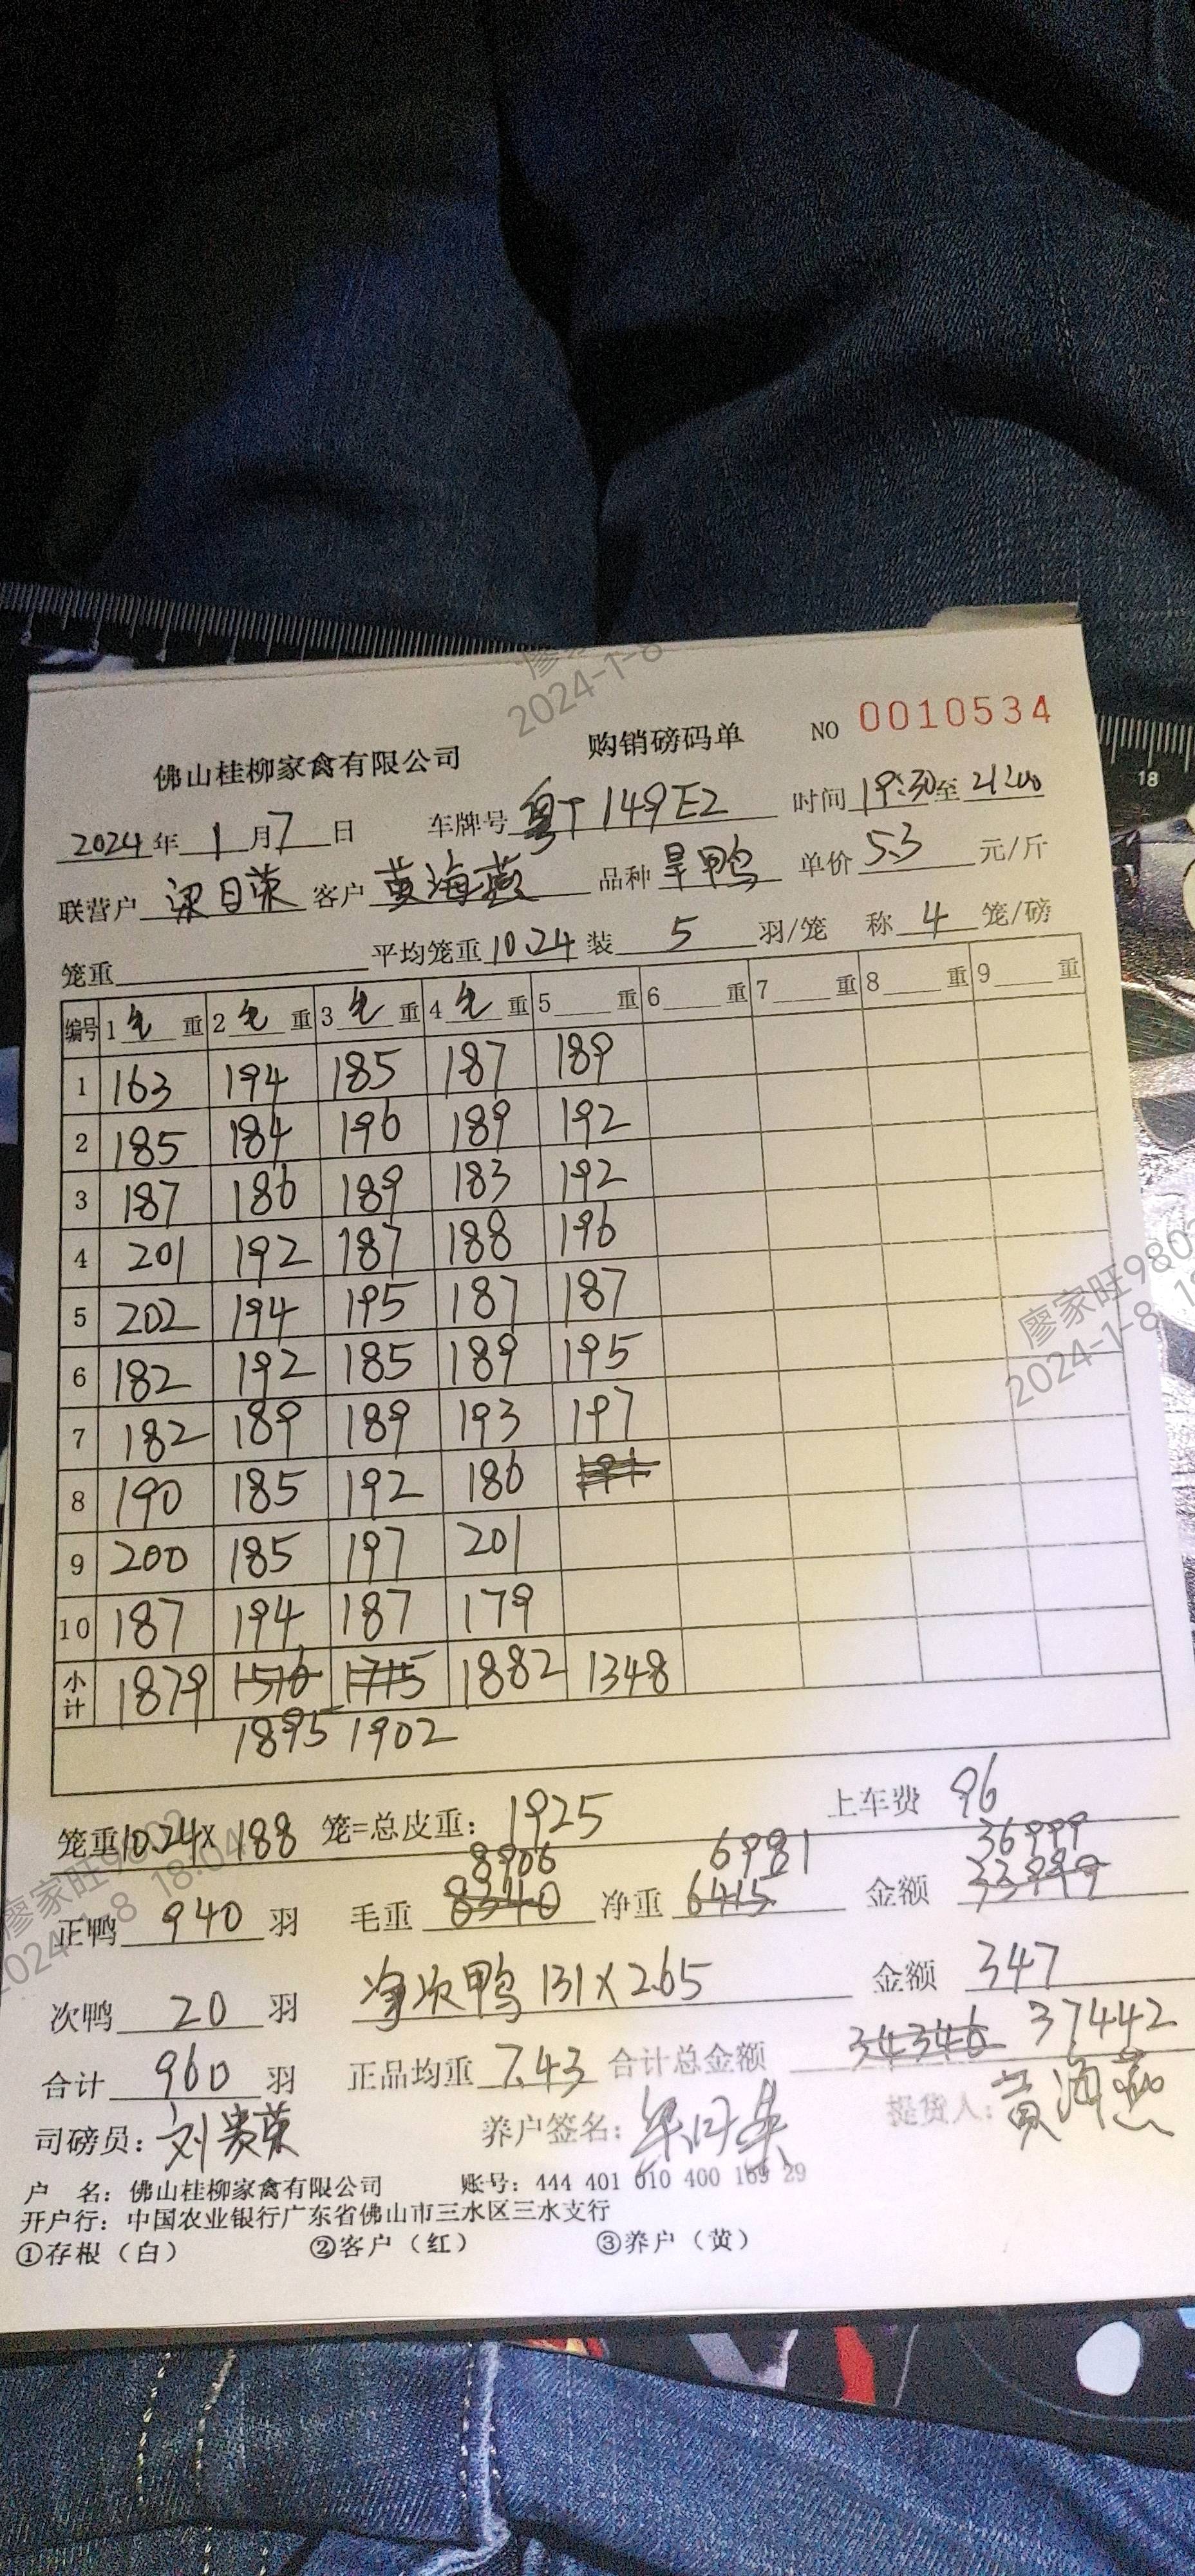 佛山桂柳家禽有限公司 购销磅码单 NO 0010534
2024年1月7日 车牌号 粤T149E2 时间 19:30至21:00
联营户 梁日荣 客户 黄海燕 品种 旱鸭 单价 5.3 元/斤
笼重 平均笼重 10.24 装 5 羽/笼 称 4 笼/磅
编号 1毛重 2毛重 3毛重 4毛重 5重 6重 7重 8重 9重
1 163 194 185 187 189
2 185 184 196 189 192
3 187 186 189 183 192
4 201 192 187 188 196
5 202 194 195 187 187
6 182 192 185 189 195
7 182 189 189 193 197
8 190 185 192 186
9 200 185 197 201
10 187 194 187 179
小计 1879 1576 1715 1882 1348
1895 1902
笼重10.24×188 笼=总皮重：1925 上车费 96
8906 6981 36999
正鸭 940 羽 毛重 8340 净重 6415 金额 33999
次鸭 20 羽 净次鸭 131×2.65 金额 347
合计 960 羽 正品均重 7.43 合计总金额 34346 37442
司磅员：刘贵荣 养户签名： 提货人：黄海燕
户 名：佛山桂柳家禽有限公司 账号：444 401 010 400 169 29
开户行：中国农业银行广东省佛山市三水区三水支行
①存根（白） ②客户（红） ③养户（黄）
2024-1-8
廖家旺980
2024-1-8
廖家旺9802
2024-1-8 18:04
18